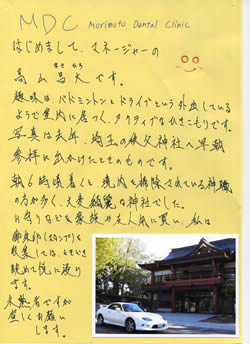 MDC Morimoto Dental Clinic
はじめまして、マネージャーの
高山昌大です。
趣味は、バドミントンとドライブという外出している
ようで室内に居つく、アクティブなひきこもりです。
写真は去年、埼玉の秩父神社へ早朝
参拝に出かけたときのものです。
朝6時頃着くと、境内を掃除されている神職
の方が多く、大変綺麗な神社でした。
お守りなどを家族や友人用に買い、私は
御朱印(スタンプ)を
収集しては、ときどき
眺めて悦に浸りま
す。
未熟者ですが
宜しくお願い
します。